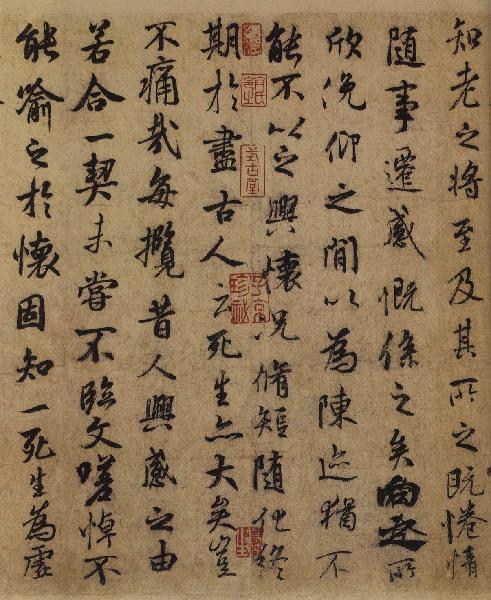 知老之將至及其所之既惓情
隨事遷感慨係之矣向之所
欣俛仰之閒以為陳迹猶不
能不以之興懷況脩短隨化終
期於盡古人云死生亦大矣豈
不痛哉每攬昔人興感之由
若合一契未嘗不臨文嗟悼不
能喻之於懷固知一死生為虛